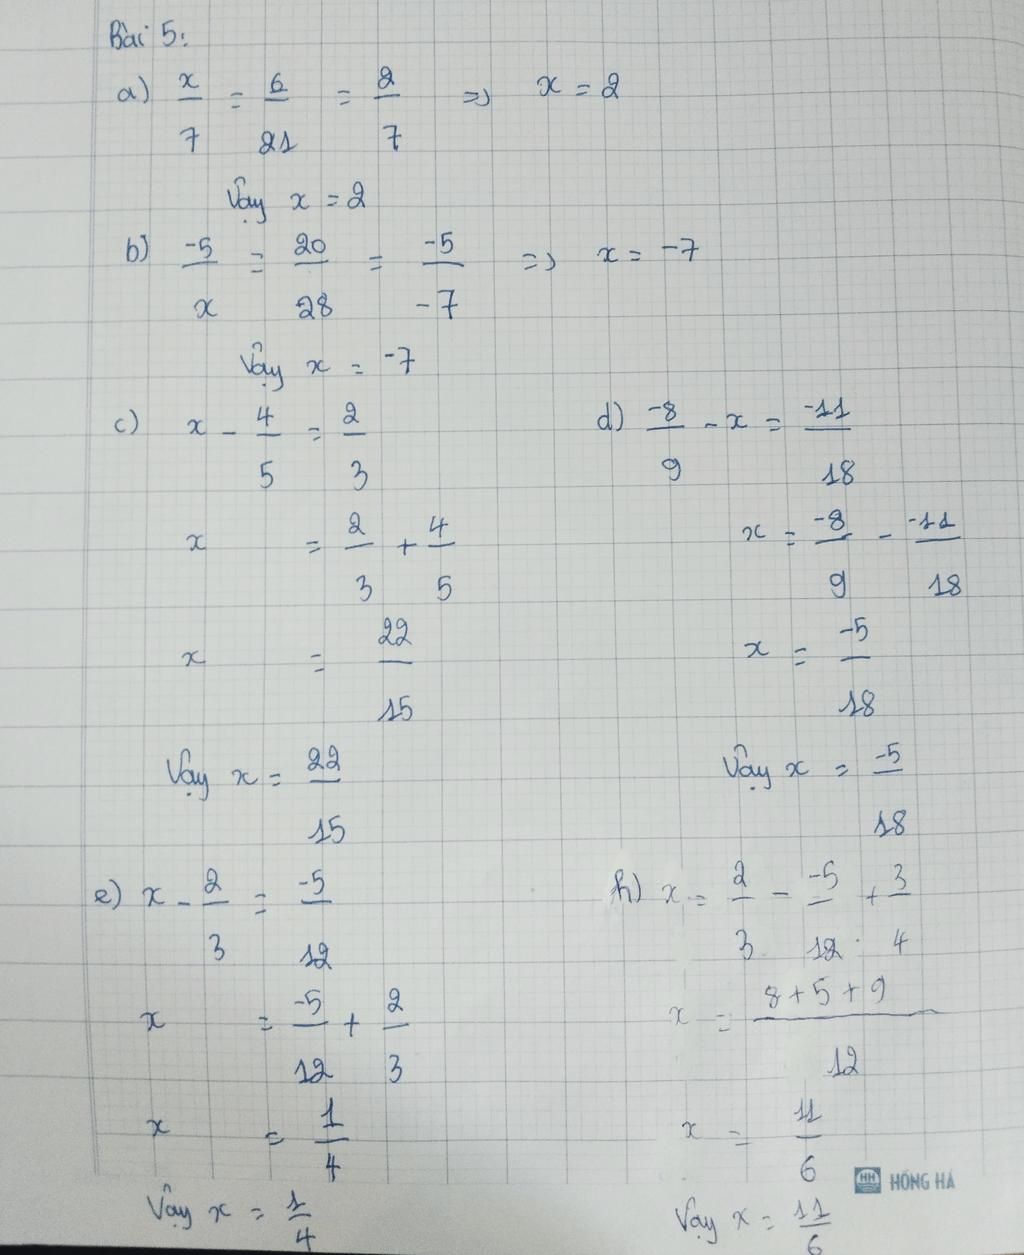 Bài 5:
a) x/7 = 6/21 = 2/7 => x = 2
Vậy x = 2
b) -5/x = 20/28 = -5/-7 => x = -7
Vậy x = -7
c) x - 4/5 = 2/3
x = 2/3 + 4/5
x = 22/15
Vậy x = 22/15
d) -8/9 - x = -11/18
x = -8/9 - -11/18
x = -5/18
Vậy x = -5/18
e) x - 2/3 = -5/12
x = -5/12 + 2/3
x = 1/4
Vậy x = 1/4
h) x = 2/3 - -5/12 + 3/4
x = 8+5+9/12
x = 11/6
Vậy x = 11/6
HH HỒNG HÀ